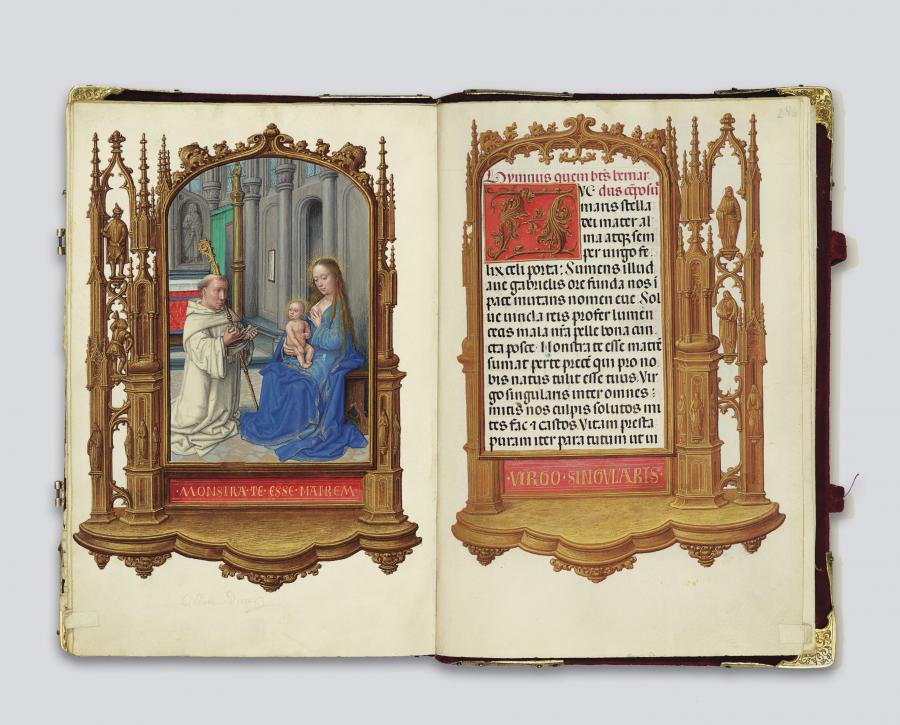 ·MONSTRA·TE·ESSE·MATREM·
Hymnus quem bt̄s bernar
AVE dus cōposuit
maris stella
dei mater al
ma atqꝫ sem
per uirgo fe
lix celi porta: Sumens illud
aue gabrielis ore funda nos ī
pace mutans nomen eue. Sol
ue uincla reis profer lumen
cecis mala nr̄a pelle bona cun
cta posce. Monstra te esse matrē
sumat per te precē qui pro no
bis natus tulit esse tuus. Vir
go singularis inter omnes:
mitis nos culpis solutos mi
tes fac ⁊ castos. Vitam presta
puram iter para tutum ut ui
·VIRGO·SINGVLARIS·